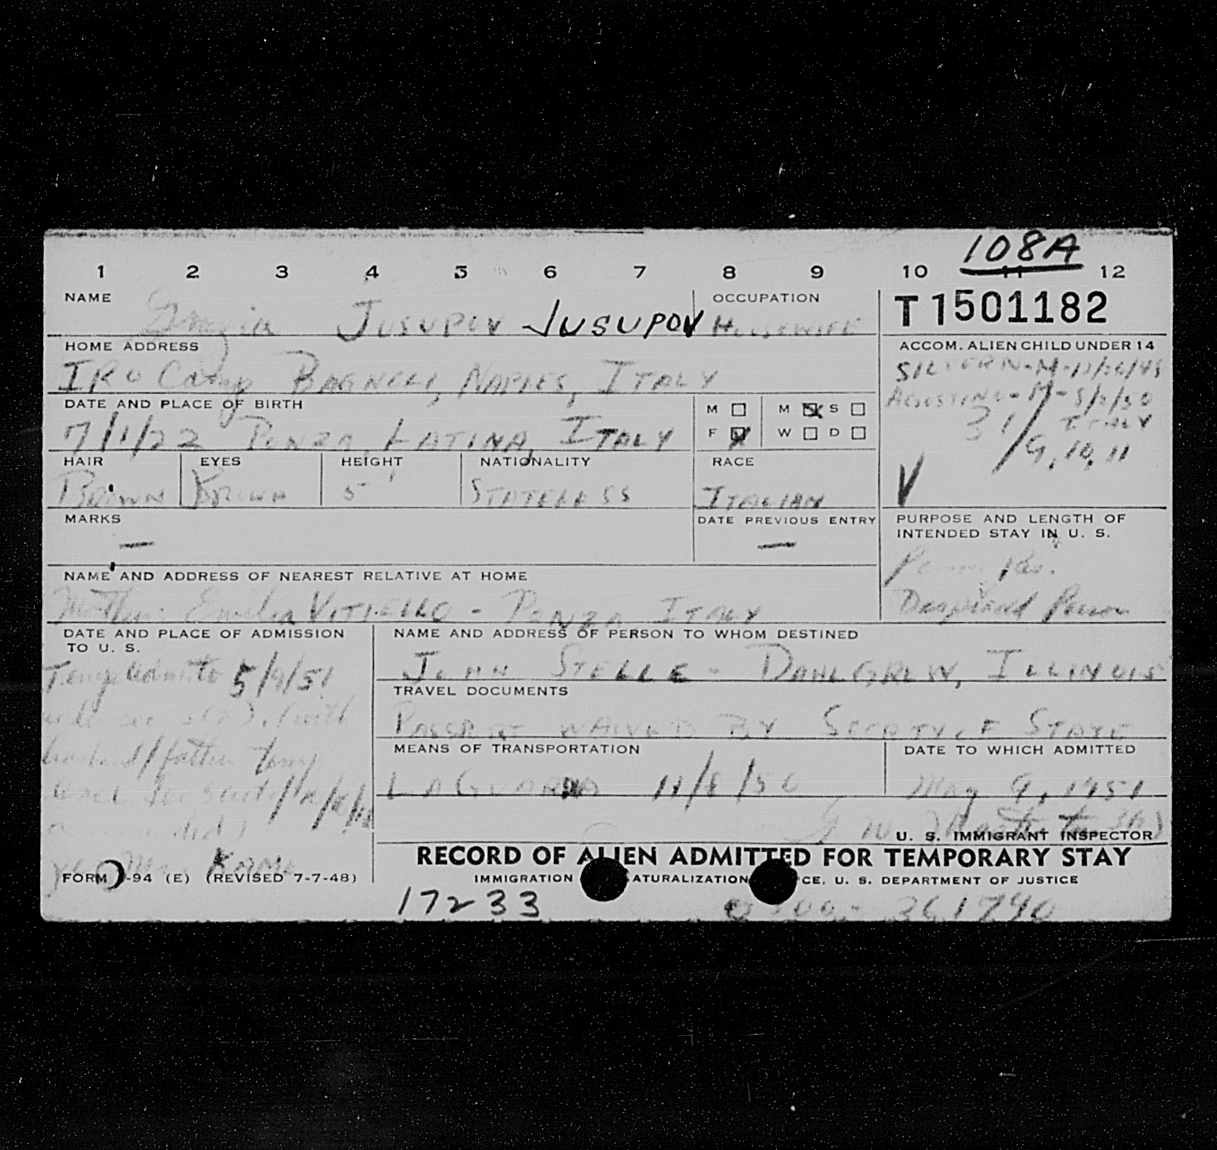 108A
1 2 3 4 5 6 7 8 9 10 11 12
NAME
Grazia JUSUPOV JUSUPOV
OCCUPATION
HOUSEWIFE
T1501182
HOME ADDRESS
IRO Camp BAGNOLI, NAPLES, ITALY
ACCOM. ALIEN CHILD UNDER 14
M
AGOSTINO - M - 5/2/50
31/ ITALY
9, 10, 11
DATE AND PLACE OF BIRTH
7/1/22 PONZA, LATINA, ITALY
M M S
F W D
HAIR
BROWN
EYES
BROWN
HEIGHT
5'
NATIONALITY
STATELESS
RACE
ITALIAN
MARKS
—
DATE PREVIOUS ENTRY
—
PURPOSE AND LENGTH OF
INTENDED STAY IN U. S.
Perm Res.
Displaced Person
NAME AND ADDRESS OF NEAREST RELATIVE AT HOME
Mother: Emilia VITIELLO - PONZA ITALY
DATE AND PLACE OF ADMISSION
TO U. S.
5/9/51
husband/father temp
NAME AND ADDRESS OF PERSON TO WHOM DESTINED
JOHN STELLE - DAHLGREN, ILLINOIS
TRAVEL DOCUMENTS
PASSPORT WAIVED BY SECRTY OF STATE
MEANS OF TRANSPORTATION
LAGUARDIA 11/8/50
DATE TO WHICH ADMITTED
May 9, 1951
U. S. IMMIGRANT INSPECTOR
RECORD OF ALIEN ADMITTED FOR TEMPORARY STAY
FORM -94 (E) (REVISED 7-7-48)
IMMIGRATION ATURALIZATION CE, U. S. DEPARTMENT OF JUSTICE
17233
0300 - 361740